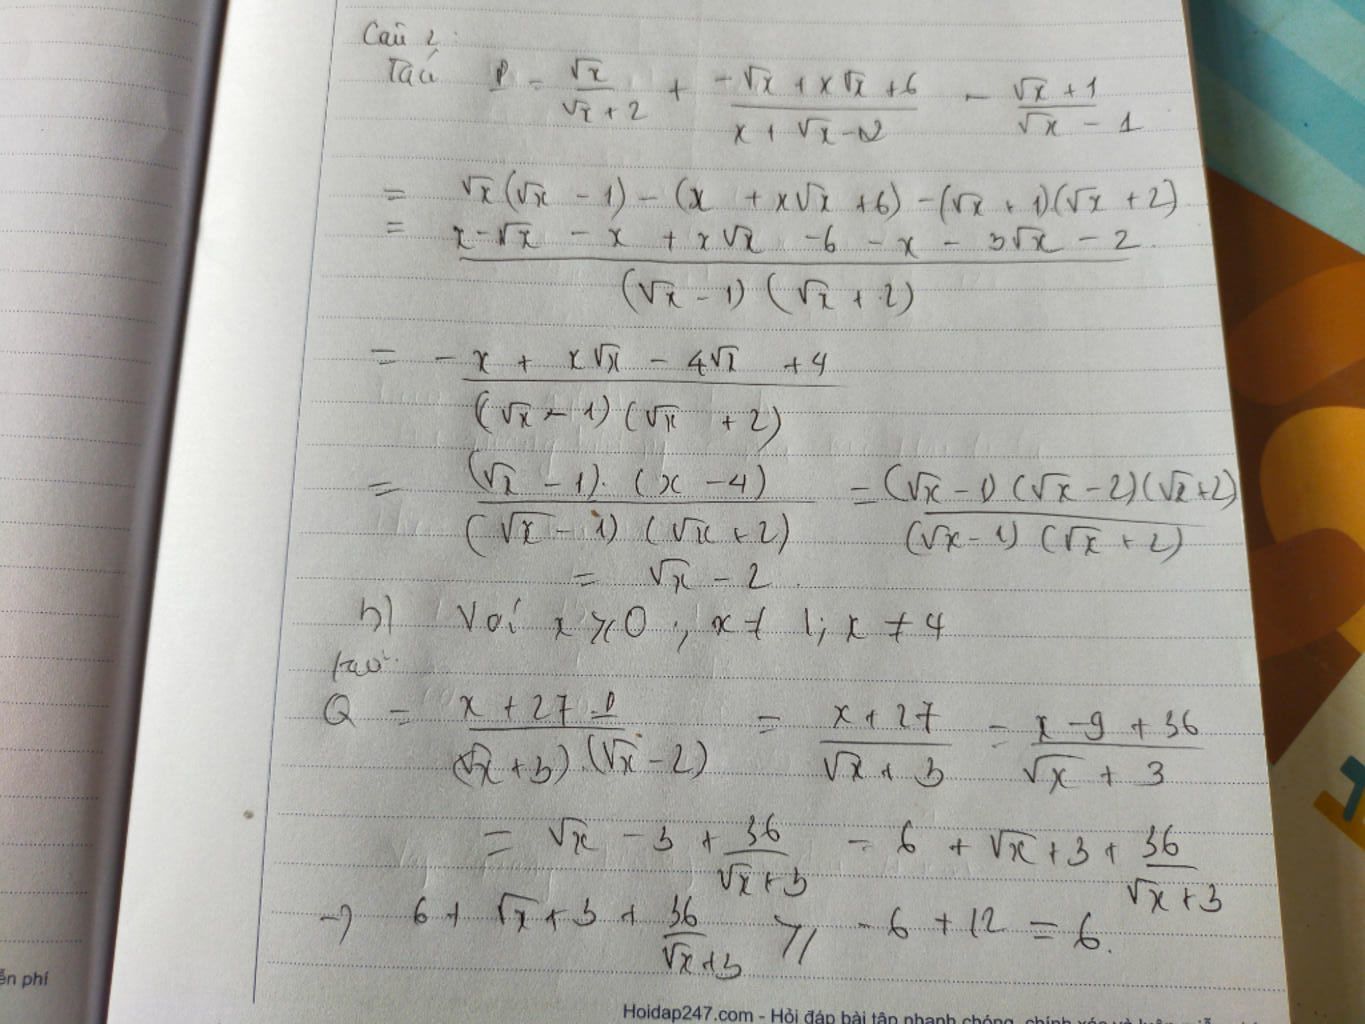 Câu 2:
Ta có P = √x/(√x + 2) + (-√x + x√x + 6)/(x + √x - 2) - (√x + 1)/(√x - 1)
= √x(√x - 1) - (x + x√x + 6) - (√x + 1)(√x + 2)
= (x - √x - x + x√x - 6 - x - 3√x - 2)/((√x - 1)(√x + 2))
= (-x + x√x - 4√x + 4)/((√x - 1)(√x + 2))
= ((√x - 1).(x - 4))/((√x - 1)(√x + 2)) = ((√x - 1)(√x - 2)(√x + 2))/((√x - 1)(√x + 2))
= √x - 2.
b) Với x ≥ 0; x ≠ 1; x ≠ 4
ta có:
Q = (x + 27.P)/((√x + 3).(√x - 2)) = (x + 27)/(√x + 3) = (x - 9 + 36)/(√x + 3)
= √x - 3 + 36/(√x + 3) = -6 + √x + 3 + 36/(√x + 3)
→ 6 + √x + 3 + 36/(√x + 3) ≥ -6 + 12 = 6.
ễn phí
Hoidap247.com - Hỏi đáp bài tập nhanh chóng, chính xác và luôn miễn